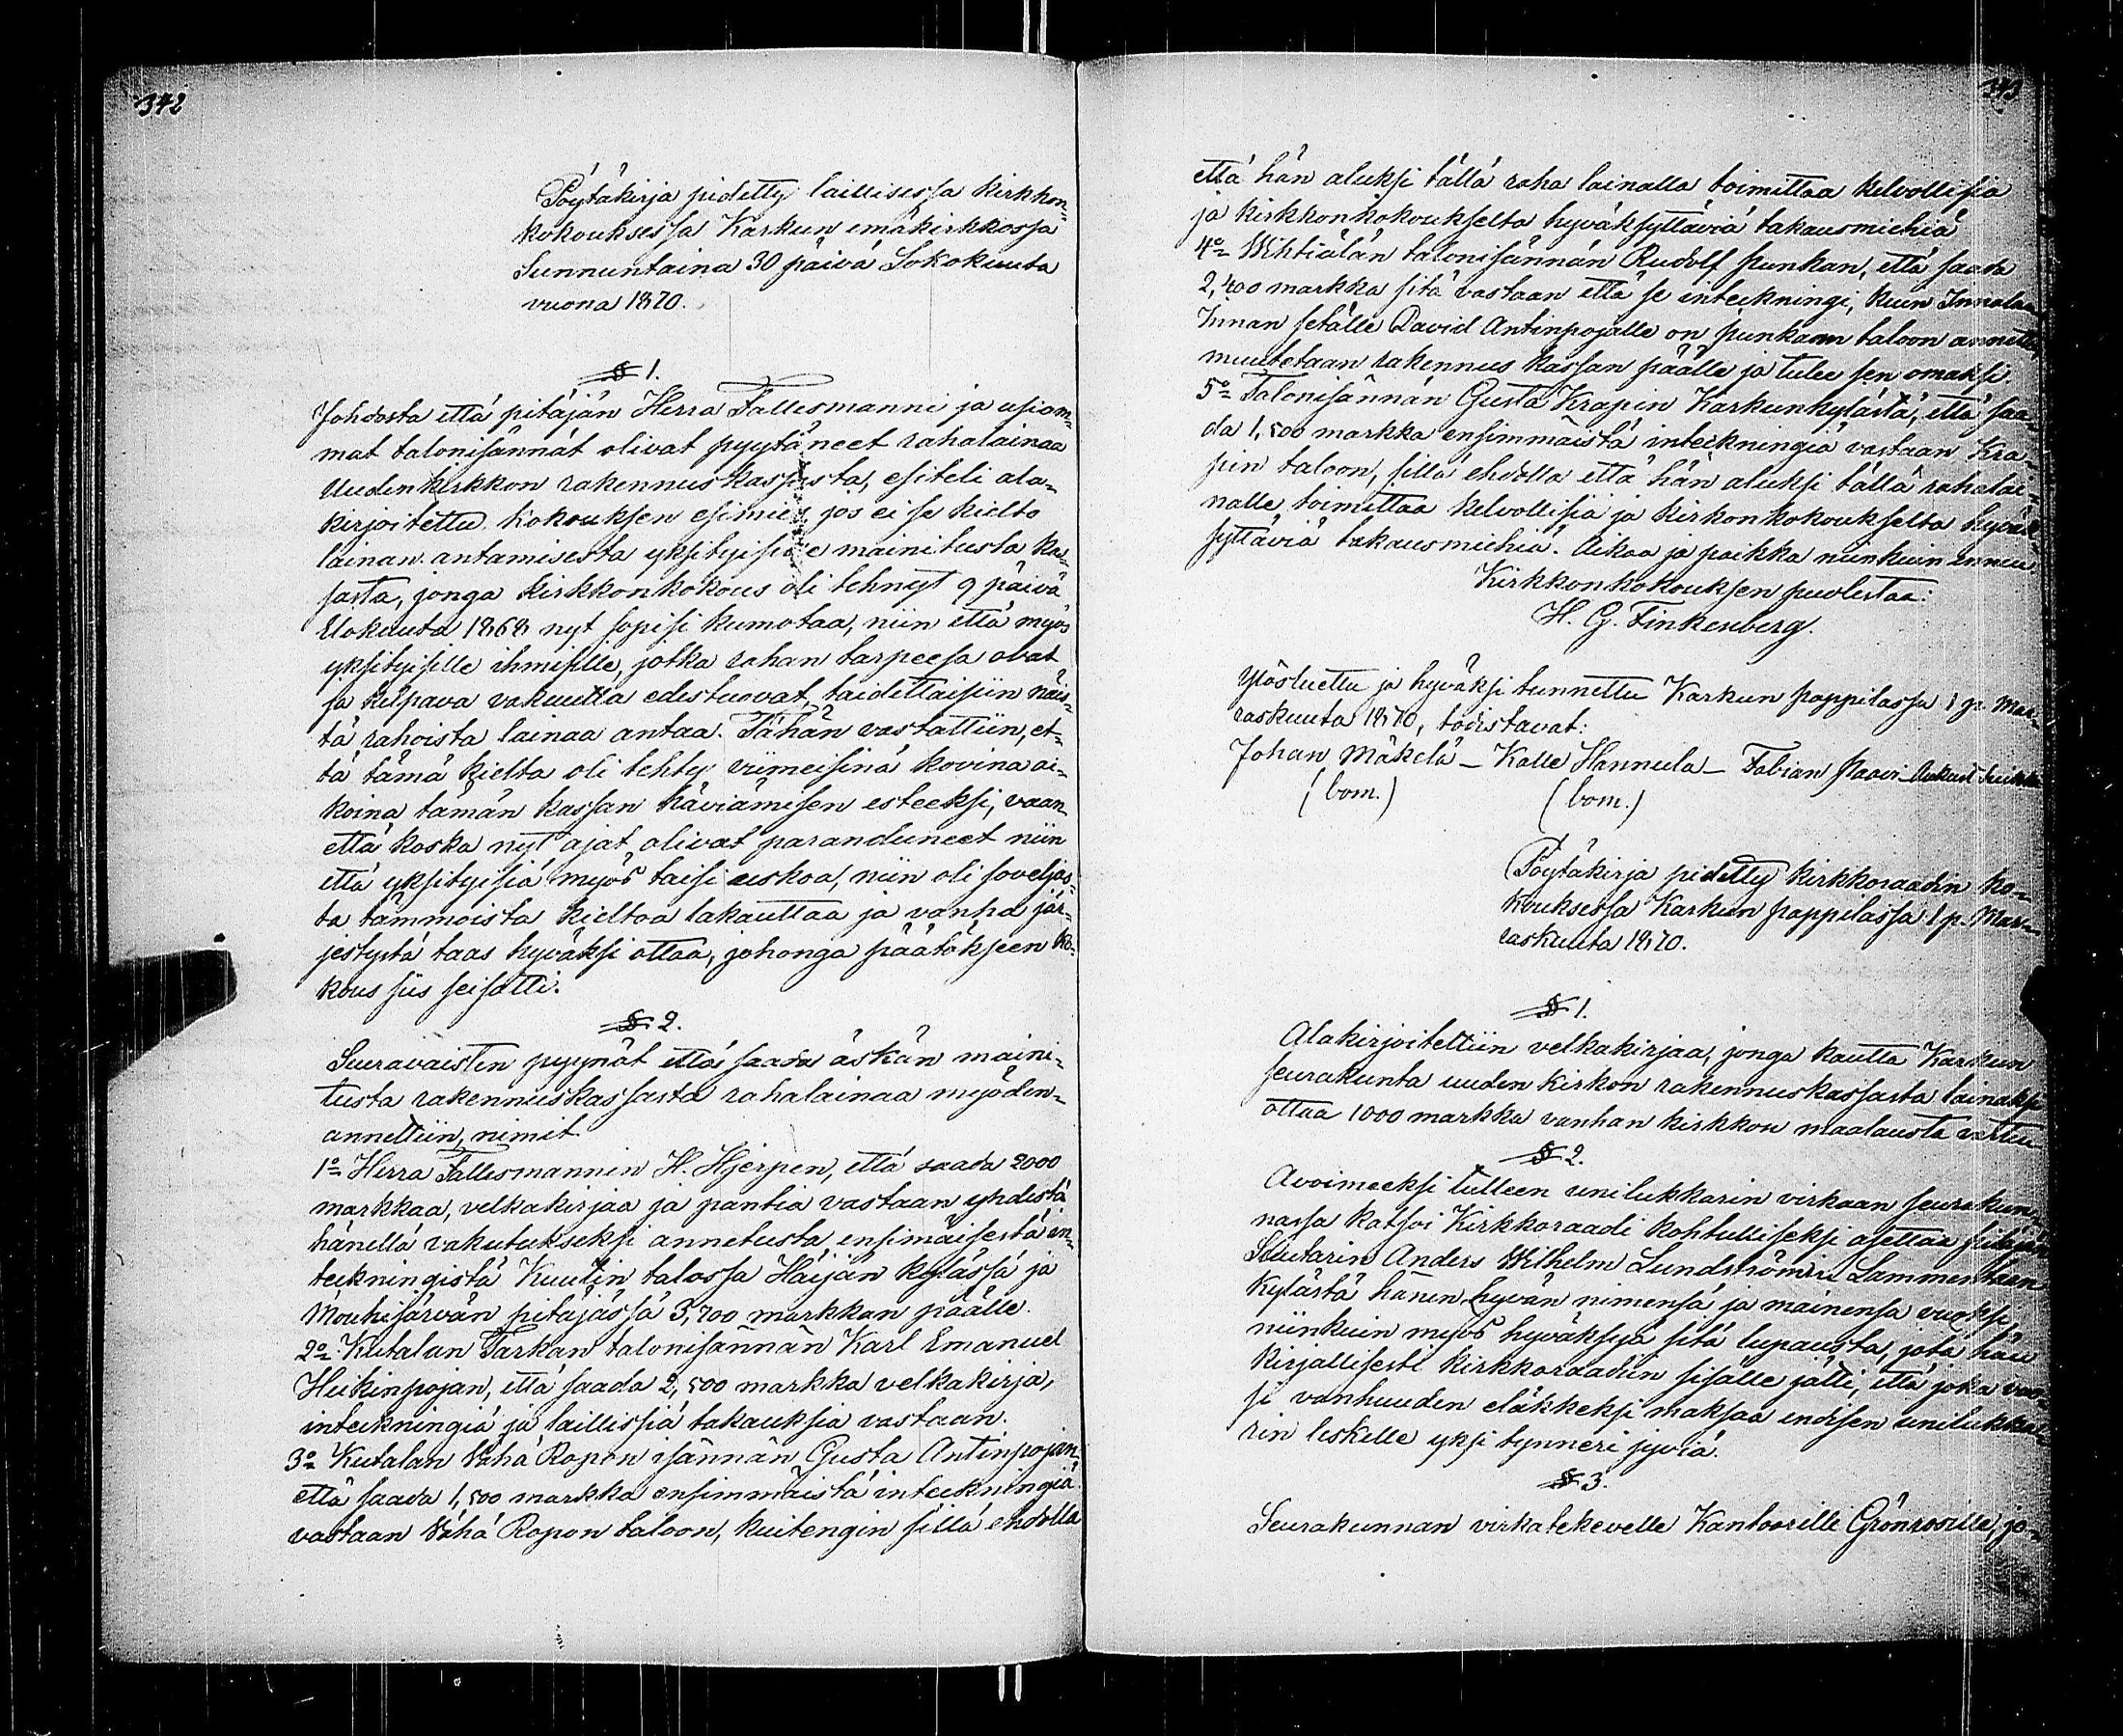 342
Pöytäkirja pidetty laillisessa kirkkon-
kokouksessa Karkun emäkirkkossa
Sunnuntaina 30 päivä Lokokuuta
vuona 1870.
§ 1.
Johdosta että pitäjän Herra Fallesmanni ja usiom-
mat talonisännät olivat pyytäneet rahalainaa
Uudenkirkkon rakennuskassasta, esiteli ala-
kirjoitettu kokouksen esimies, jos ei se kielto
lainan antamisesta yksityisille mainitusta kas-
sasta, jonga kirkkonkokous oli tehnyt 9 päivä
Elokuuta 1868 nyt sopisi kumotaa, niin että myös
yksityisille ihmisille, jotka rahan tarpeesa ovat
ja kelpava vakuutta edestuovat, taidettaisiin näis-
tä rahoista lainaa antaa. Tähän vastattiin, et-
tä tämä kielta oli tehty viimeisinä kovina ai-
koina tämän kassan häviämisen esteeksi, vaan
että koska nyt ajat olivat paranduneet niin
että yksityisiä myös taisi uskoa, niin oli soveljas-
ta tämmöistä kieltoa takauttaa ja vanha jär-
jestystä taas hyväksi ottaa, johonga päätökseen ko-
kous siis seisatti.
§ 2.
Seuravaisten pyynöt että saada äskän maini-
tusta rakennuskassasta rahalainaa myöden-
annettiin, nimit.
1o Herra Fallesmannin H. Hjerpen, että saada 2000
markkaa, velkakirjaa ja pantia vastaan yhdestä
hänellä vakutukseksi annetusta ensimäisestä in-
teckningistä Kuutin talossa Häijän kylässä ja
Mouhijärvän pitäjässä 3,700 markkan päälle.
2o Kutalan Tarkan talonisännän Karl Emanuel
Heikinpojan, että saada 2,500 markka velkakirja,
inteckningiä ja laillissiä takauksia vastaan.
3o Kutalan Vähä Ropon isännän Gusta Antinpojan
että saada 1,500 markka ensimmäistä inteckningiä
vastaan Vähä Ropon taloon, kuitengin sillä ehdolla
343
että hän aluksi tällä raha lainalla toimittaa kelvollisia
ja kirkkonkokoukselta hyväksyttäviä takausmiehiä
4o Wihtiälän talonisännän Rudolf Punkan, että saada
2,400 markka sitä vastaan että se inteckningi, kuin Innalan
Innan setälle David Antinpojalle on Punkan taloon annettu,
muutetaan rakennus kassan päälle ja tulee sen omaksi.
5o Talonisännän Gusta Krapin Karkunkylästä, että saa-
da 1,500 markka ensimmäistä inteckningiä vastaan Kra-
pin taloon, sillä ehdolla että hän aluksi tällä rahalai-
nalle toimittaa kelvollisia ja kirkonkokoukselta hyväk-
syttäviä takausmiehiä. Aikaa ja paikka niinkuin ennen
Kirkkonkokouksen puolestaa:
H. G. Finkenberg.
Ylösluettu ja hyväksi tunnettu Karkun pappilassa 1 p. Mar-
raskuuta 1870, todistavat:
Johan Mäkelä – Kalle Hannula – Fabian Paavi – Aukusti
(bom.) (bom.)
Pöytäkirja pidetty kirkkoraadin ko-
kouksessa Karkun pappilassa 1 p. Mar-
raskuuta 1870.
§ 1.
Alakirjoitettiin velkakirjaa, jonga kautta Karkun
seurakunta uuden kirkon rakennuskassasta lainaksi
ottaa 1000 markka vanhan kirkkon maalausta varten
§ 2.
Avoimeeksi tulleen unilukkarin virkaan seurakun-
nassa katsoi Kirkkoraadi kohtulliseksi asettaa pitäjän
Suutarin Anders Wilhelm Lundströmin Lammentaan
kylästä hänen hyvän nimensä ja mainensa vuoksi,
niinkuin myös hyväksyä sitä lupausta, jota hän
kirjallisesti kirkkoraadin sisälle jätti, että joka vuo-
si vanhuuden eläkkeksi maksaa endisen unilukka-
rin leskelle yksi tynneri jyviä.
§ 3.
Seurakunnan virkatekevelle Kantoorille Grönroosille, jo-